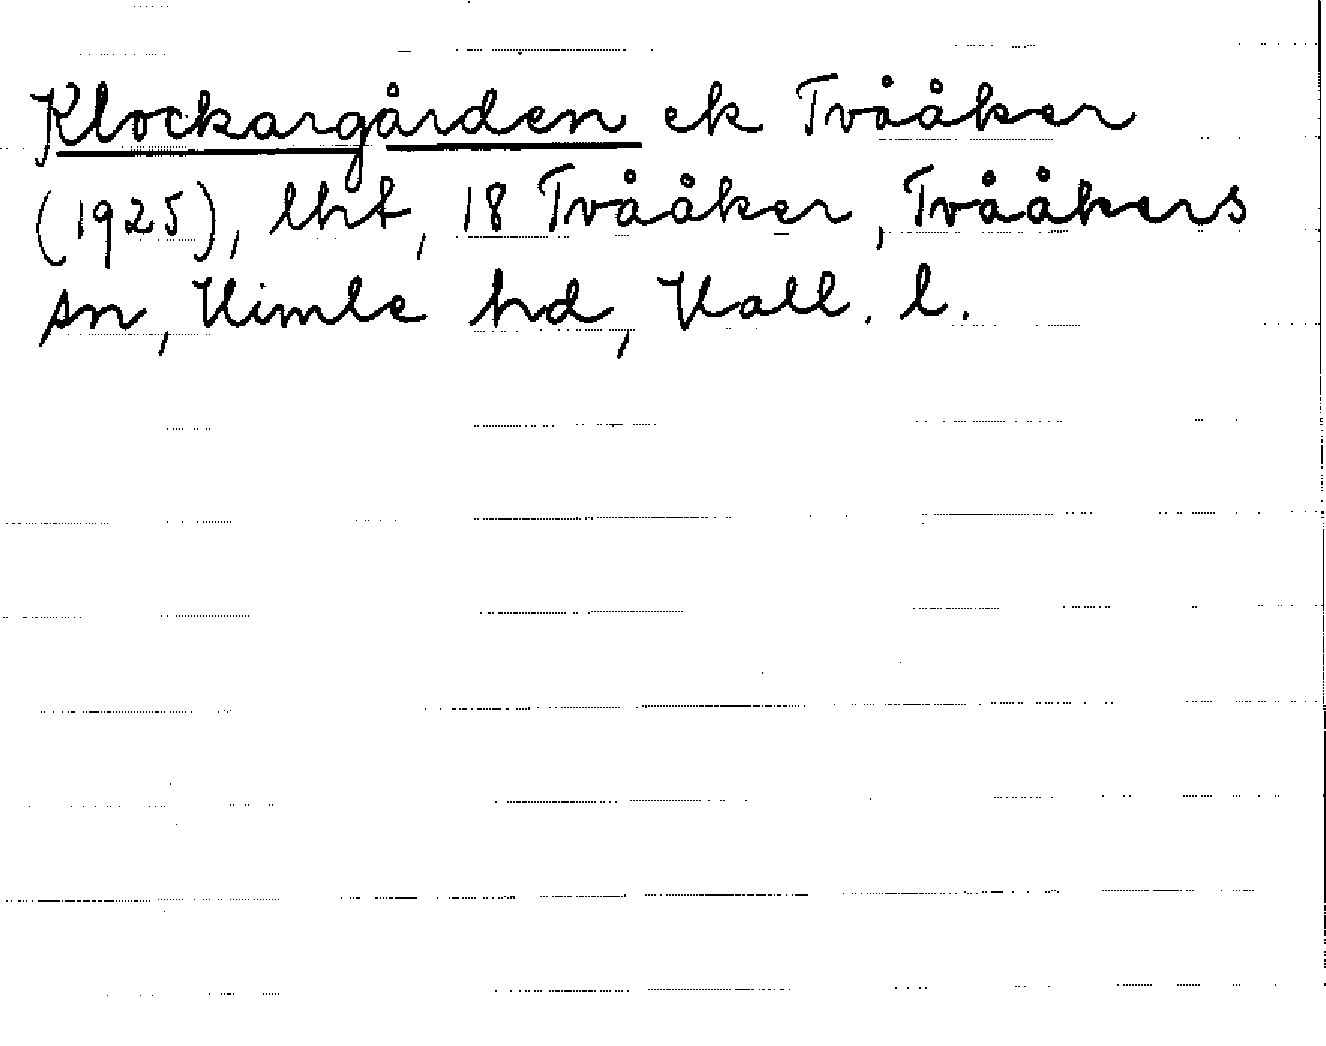 Klockargården ek Tvååker
(1925), lht, 18 Tvååker, Tvååkers
sn, Himle hd, Hall. l.